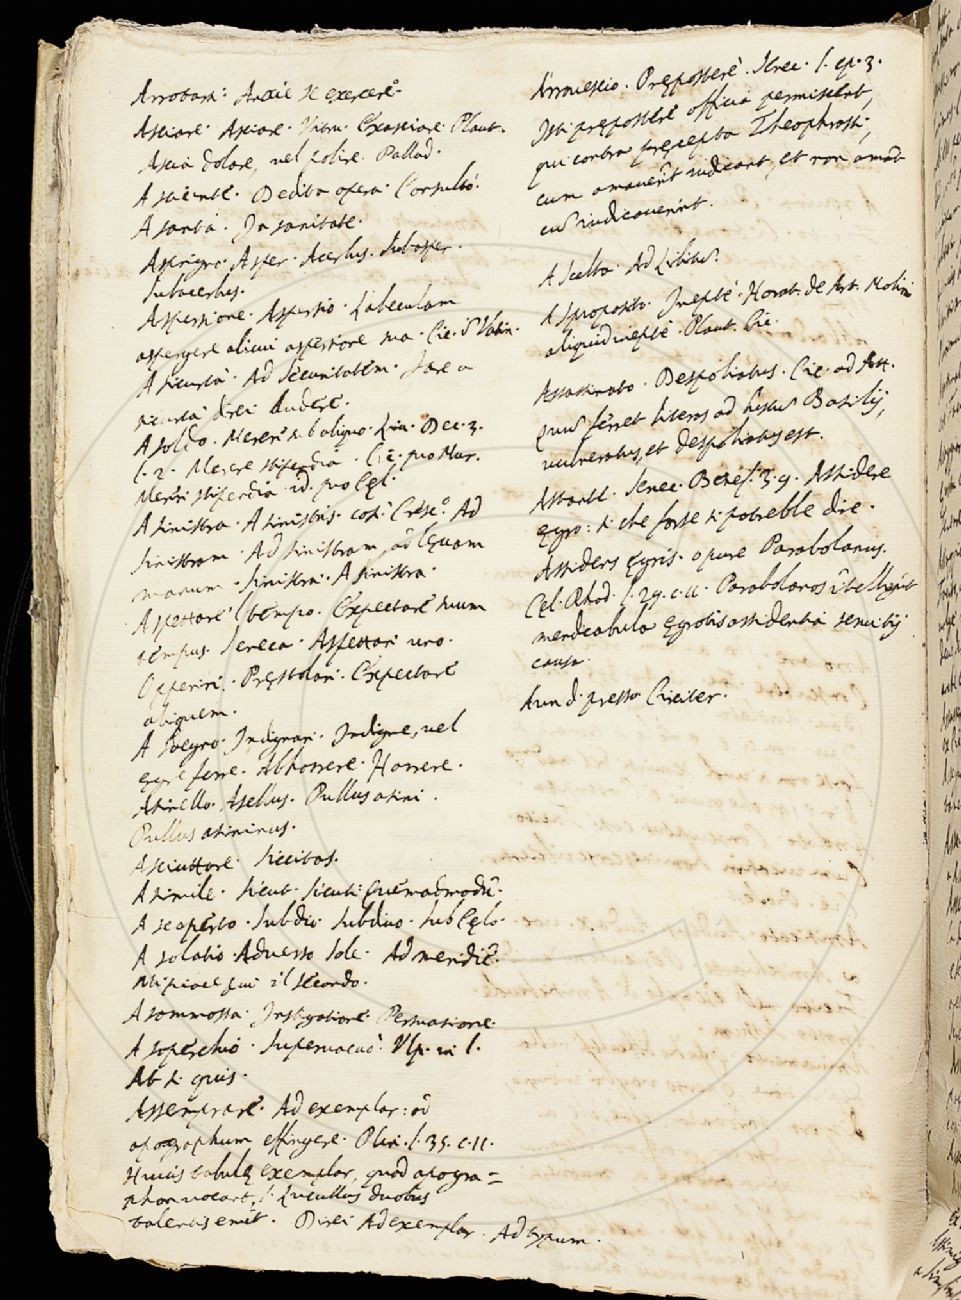 Arrotarsi: Ancie se exercere.
Asciare. Asciare. Vitru. Exasciare. Plaut.
Ascia dolare, vel polire. Pallad.
A sciente. Dedita opera. Consultò.
A santà. In sanitate.
Asprigno. Asper. Acerbus. Subasper.
Subacerbus.
Asperzione. Aspersio. Labeculam
aspergere alicui aspersione sua. Cic. Vatin.
A sicurtà. Ad securitatem. Fare a
sicurtà direi Audere.
A soldo. Mereri sub aliquo. Liu. Dec. 3.
l. 2. Merere stipendia. Cic. pro Mur.
Mereri stipendia id. pro Cęl.
A sinistra. A sinistris. così Cresc.o Ad
sinistram. Ad sinistram, aō lęuam
manum. Sinistra. A sinistra.
Aspettare il tempo. Expectare suum
tempus. Seneca. Aspettar uno.
Opperiri. Pręstolari. Expectare
aliquem.
A sdegno. Indignari. Indigne, vel
ęgre ferre. Abhorrere. Horrere.
Asinello. Asellus. Pullus asini.
Pullus asininus.
Asciuttore. Siccitas.
A simile. Sicut. Sicuti. Quemadmodū.
A scoperto. Subdio. Subdiuo. Sub Cęlo.
A solatio. Aduerso sole. Ad meridiē.
Mi piace piu il secondo.
A sommossa. Instigatione. Persuasione.
A soperchio. Superuacuò. Vlp. in l.
At si quis.
Assemprare. Ad exemplar: aō
apographum effingere. Plin. l. 35. c. 11.
Huius tabulę exemplar, quod apogra=
phon uocant, L. Lucullus duobus
talentis emit. Direi Ad exemplar. Ad typum.
Arrouescio. Pręposterè. Senec. l. ep. 3.
Isti pręposterè officia permiscent,
qui contra pręcepta Theophrasti,
cum amauerūt iudicant, et non amāt
cū iudicauerint.
A Scelta. Ad Libitū.
A sproposito. Ineptè. Horat. de Art. Moliri
aliquid ineptè. Plaut. Cic.
Assassinato. Despoliatus. Cic. ad Att.
quū ferret literas ad hustū Basilij,
uulneratus, et despoliatus est.
Astante. Senec. Benef. 3. 9. Assidere
ęgro: si che forse si potrebbe dire.
Assidens ęgris. opure Parabolanus.
Cęl. Rhod. l. 29. c. 11. Parabolanos ītelligūt
ęgrotis assidentia seruitij
causa.
A un d. presso. Circiter.